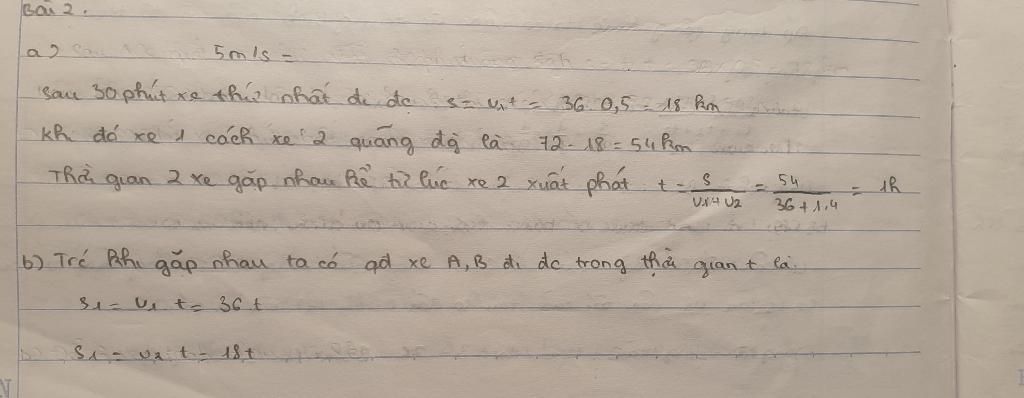 Bài 2.
a) 5m/s =
sau 30 phút xe thứ nhất đi đc s = v₁t = 36 0,5 = 18 km
khi đó xe 1 cách xe 2 quãng đg là 72 - 18 = 54 km
Thời gian 2 xe gặp nhau kể từ lúc xe 2 xuất phát t = s/(v₁+v₂) = 54/(36+1.4) = 1h
b) Trc khi gặp nhau ta có qđ xe A,B đi đc trong thời gian t là.
s₁ = v₁ t = 36 t
s₁ = v₂ t = 18t